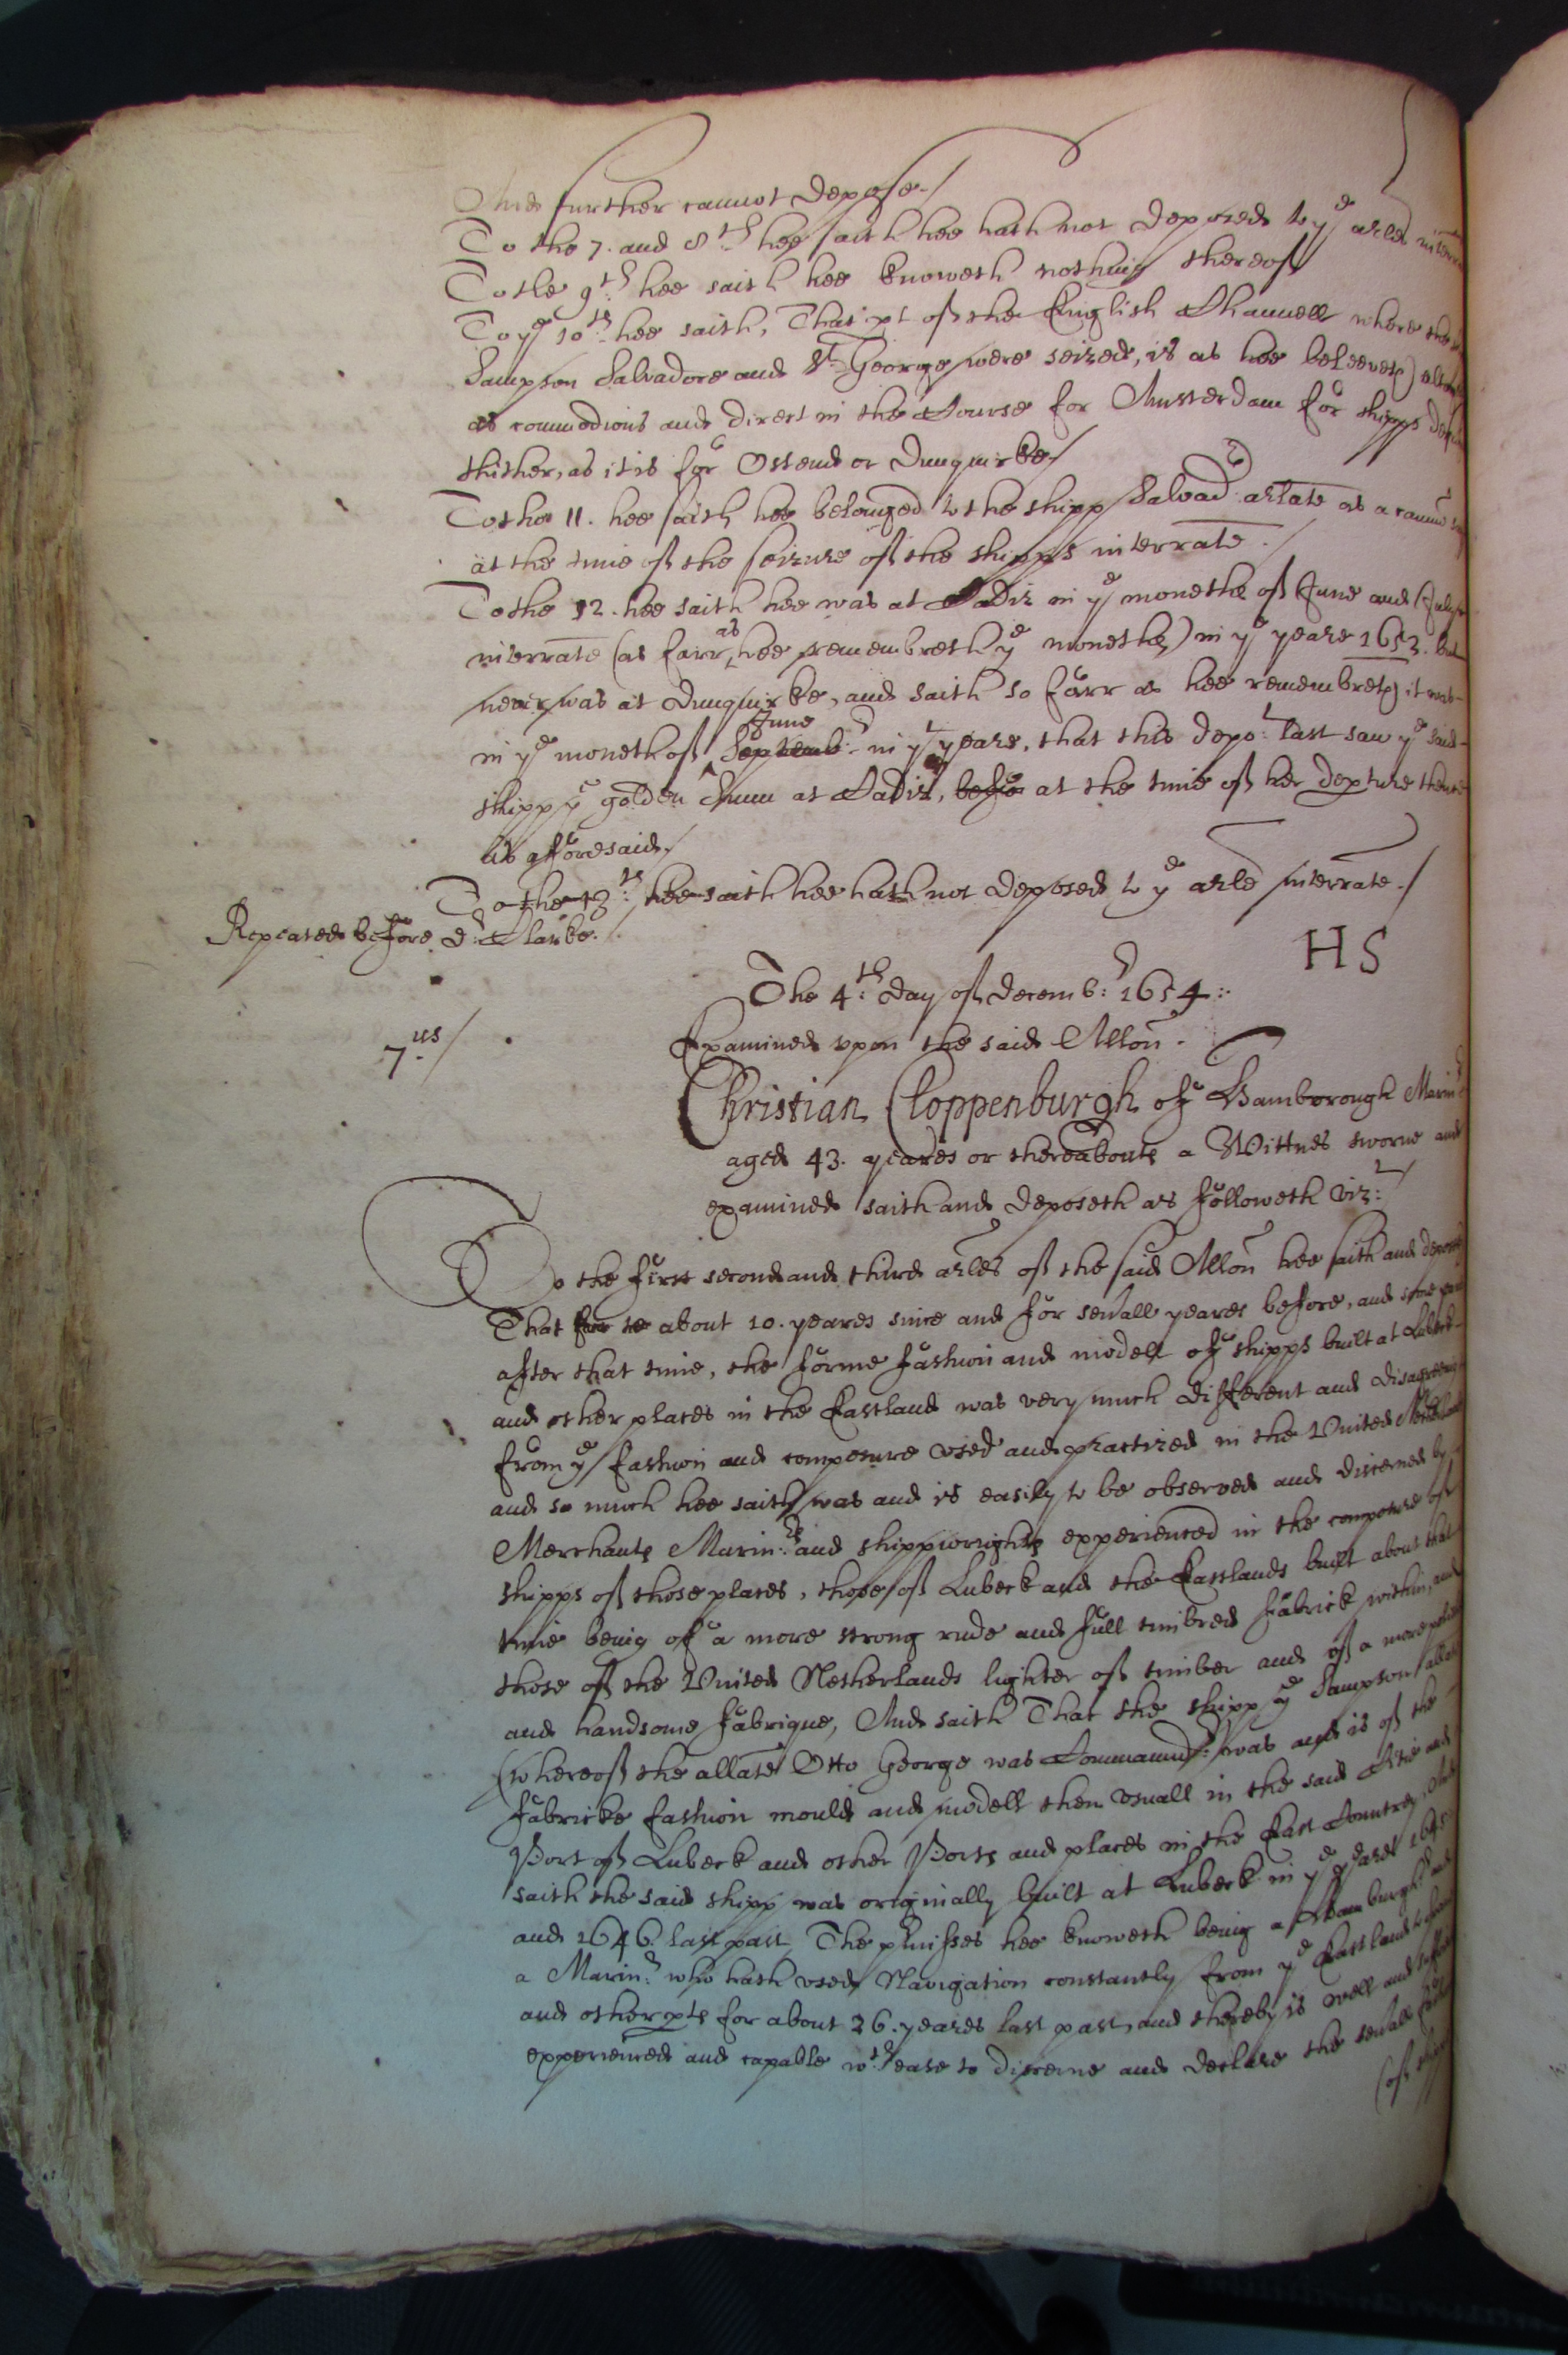 And further cannot depose./
To the 7. and 8th: hee saith hee hath not deposed to ye arles
To the 9th: hee saith hee knoweth nothing thereof/
To ye 10th: hee saith, That pt of the English Channell where the
Sampson Salvadore and St. George were seized, is as hee beleeveth)
as commodious and direct in the Course for Amsterdam for shipps
thither, as it is for Ostend or Dunquirke/
To the 11. hee saith hee belonged to the shipp Salvadr arlate as a
at the time of the seizure of the shipps interrate./
To the 12. hee saith hee was at Cadiz in ye moneths of June and July
interrate (as farr as hee remembreth ye moneths) in ye yeare 1652. but
never was at Dunquirke, and saith so farr as hee remembreth it was
in ye moneth of June Septembr: in yt yeare, that this depot: last saw ye said
shipp ye golden Sunn at Cadiz, before at the time of her depture thence
as aforesaid./
To the 13th: hee saith hee hath not deposed to ye arle interrate./
Repeated before Dr: Clarke.
HS
The 4th: day of Decembr: 1654:
Examined upon the said Allon.
7us/
Christian Cloppenburgh of Hamborough Marinr:
aged 43. yeares or thereabouts a Wittnes sworne and
examined saith and deposeth as followeth vizt:/
To the first second and third arles of the said Allon hee saith and deposeth
That for to about 10. yeares since and for severall yeares before, and some yeares
after that time, the forme fashion and modell of shipps built at Lubeck
and other places in the Eastland was very much different and disagreeing
from ye fashion and composure used and practized in the United Netherlands
and so much hee saith was and is easily to be observed and discerned by
Merchants Marinrs: and shippwrights experienced in the composure of
shipps of those places, those of Lubeck and the Eastlands built about that
time being of a more strong rude and full timbred fabrick within, and
those of the United Netherlands lighter of timber and of a more
and handsome fabrique, And saith That the shipp ye Sampson allate
(whereof the allate Otto George was Commandr: was and is of the
fabricke fashion mould and modell then usuall in the said Citie and
Port of Lubeck and other Ports and places in the East Countrey, And
saith the said shipp was originally built at Lubeck in ye yeares 1645
and 1646. last past, The pmisses hee knoweth being a Hamburgher and
a Marinr: who hath used Navigation constantly from ye Eastland to
and other pts for about 26. yeares last past, and thereby is well and
experienced and capable wth ease to discerne and declare the severall
(of